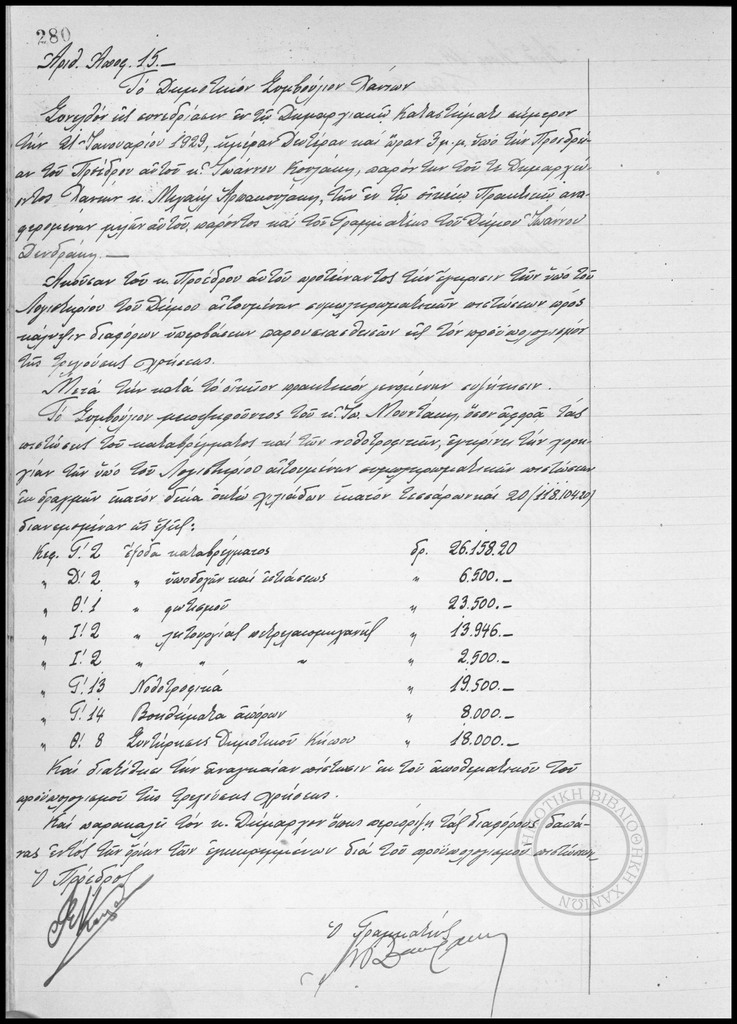 280
Ἀριθ. Ἀποφ. 15.—
Τό Δημοτικόν Συμβούλιον Χανίων
Συνελθόν εἰς συνεδρίασιν ἐν τῷ Δημαρχιακῷ Καταστήματι σήμερον
τήν 21 Ἰανουαρίου 1929, ἡμέραν Δευτέραν καί ὥραν 3 μ.μ. ὑπό τήν Προεδρεί-
αν τοῦ Προέδρου αὐτοῦ κ. Ἰωάννου, παρόντος τοῦ κ. Δημαρχεύ-
οντος Χανίων κ. Μιχαήλ, τῶν ἐν τῷ οἰκείῳ Πρακτικῷ ἀνα-
φερομένων μελῶν αὐτοῦ, παρόντος καί τοῦ Γραμματέως τοῦ Δήμου Ἰωάννου
Δενδράκη.—
Ἀκοῦσαν τοῦ κ. Προέδρου αὐτοῦ προτείναντος τήν ἔγκρισιν τῶν ὑπό τοῦ
Λογιστηρίου τοῦ Δήμου αἰτουμένων συμπληρωματικῶν πιστώσεων πρός
κάλυψιν διαφόρων ὑπερβάσεων παρουσιασθεισῶν εἰς τόν προϋπολογισμόν
τῆς τρεχούσης χρήσεως.
Μετά τήν κατά τό οἰκεῖον πρακτικόν γενομένην συζήτησιν.
Τό Συμβούλιον μειοψηφοῦντος τοῦ κ. Ἰω. Μουντάκη, ὅσον ἀφορᾷ τάς
πιστώσεις τοῦ καταβρέγματος καί τῶν νοθοτροφικῶν, ἐγκρίνει τήν χορη-
γίαν τῶν ὑπό τοῦ Λογιστηρίου αἰτουμένων συμπληρωματικῶν πιστώσεων
ἐκ δραχμῶν ἑκατόν δέκα ὀκτώ χιλιάδων ἑκατόν τεσσάρων καί 20/ (118.104.20)
διανεμομένων ὡς ἑξῆς:
Κεφ. Γ! 2 ἔξοδα καταβρέγματος δρ. 26.158.20
„ Δ! 2 „ ὑποδοχῶν καί ἑστιάσεως „ 6.500.—
„ Θ! 1 „ φωτισμοῦ „ 23.500.—
„ Ι! 2 „ λειτουργίας πετρελαιομηχανῆς „ 13.946.—
„ Ι! 2 „ „ „ „ 2.500.—
„ Γ! 13 Νοθοτροφικά „ 19.500.—
„ Γ! 14 Βοηθήματα ἀπόρων „ 8.000.—
„ Θ! 8 Συντήρησις Δημοτικοῦ Κήπου „ 18.000.—
Καί διατίθεται τήν ἀναγκαίαν πίστωσιν ἐκ τοῦ ἀποθεματικοῦ τοῦ
προϋπολογισμοῦ τῆς τρεχούσης χρήσεως.
Καί παρακαλεῖ τόν κ. Δήμαρχον ὅπως περιορίζῃ τάς διαφόρους δαπά-
νας ἐντός τῶν ὁρίων τῶν ἐγκεκριμένων διά τοῦ προϋπολογισμοῦ πιστώσεων
Ὁ Πρόεδρος
Ὁ Γραμματεύς
ΔΗΜΟΤΙΚΗ ΒΙΒΛΙΟΘΗΚΗ ΧΑΝΙΩΝ